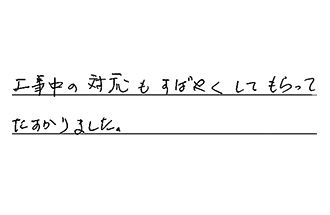 工事中の対応もすばやくしてもらって
たすかりました。